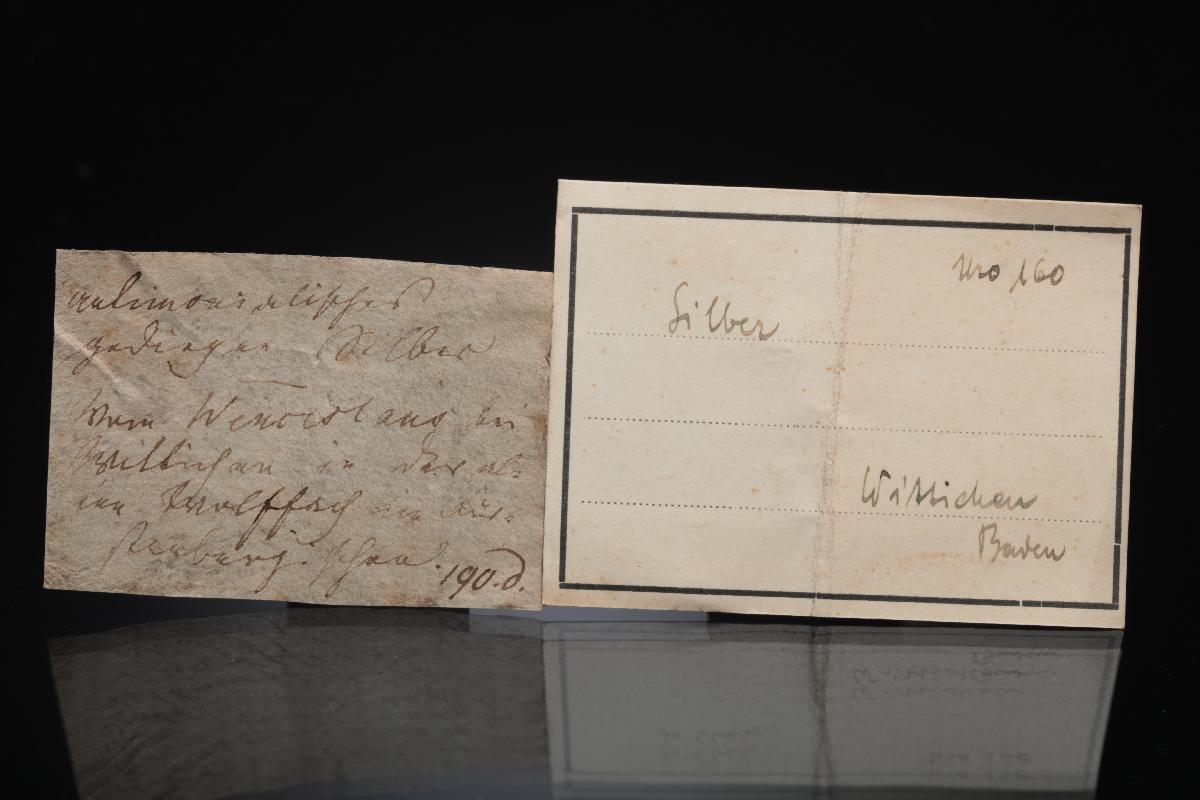 antimonialisches
gediegen Silber
Vom Wenceslaus bei
Wittichen in der al-
ten Wolffach im Für-
stenberg. schen.
190.d.
Nro 160
Silber
Wittichen
Baden